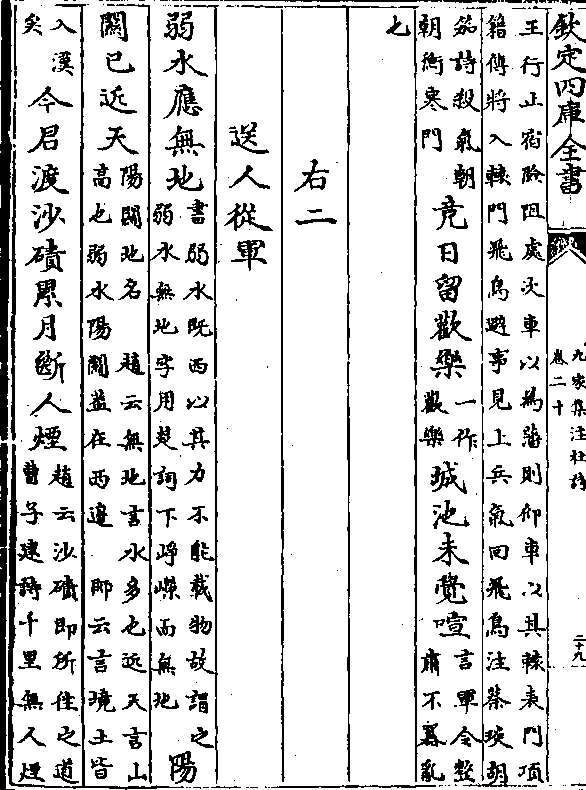 欽定四庫全書
九家集注杜詩
卷二十
二十九
王行止宿險阻處次車以為藩則仰車以其轅表門項
籍傳將入轅門飛鳥避事見上兵氣回飛鳥注蔡琰胡
笳詩殺氣朝
朝衝塞門
竟日留歡樂
一作
歡樂
城池未覺喧
言軍令整
肅不嚣亂
七
右二
送人從軍
弱水應無地
書弱水既西以其力不能載物故謂之
弱水無地字用楚詞下崢嶸而無地
陽
關已近天
陽關地名 趙云無地言水多也近天言山
高也弱水陽關蓋在西邊 師云言境土皆
入漢
矣
今君渡沙磧累月斷人煙
趙云沙磧即所往之道
曹子建詩千里無人煙